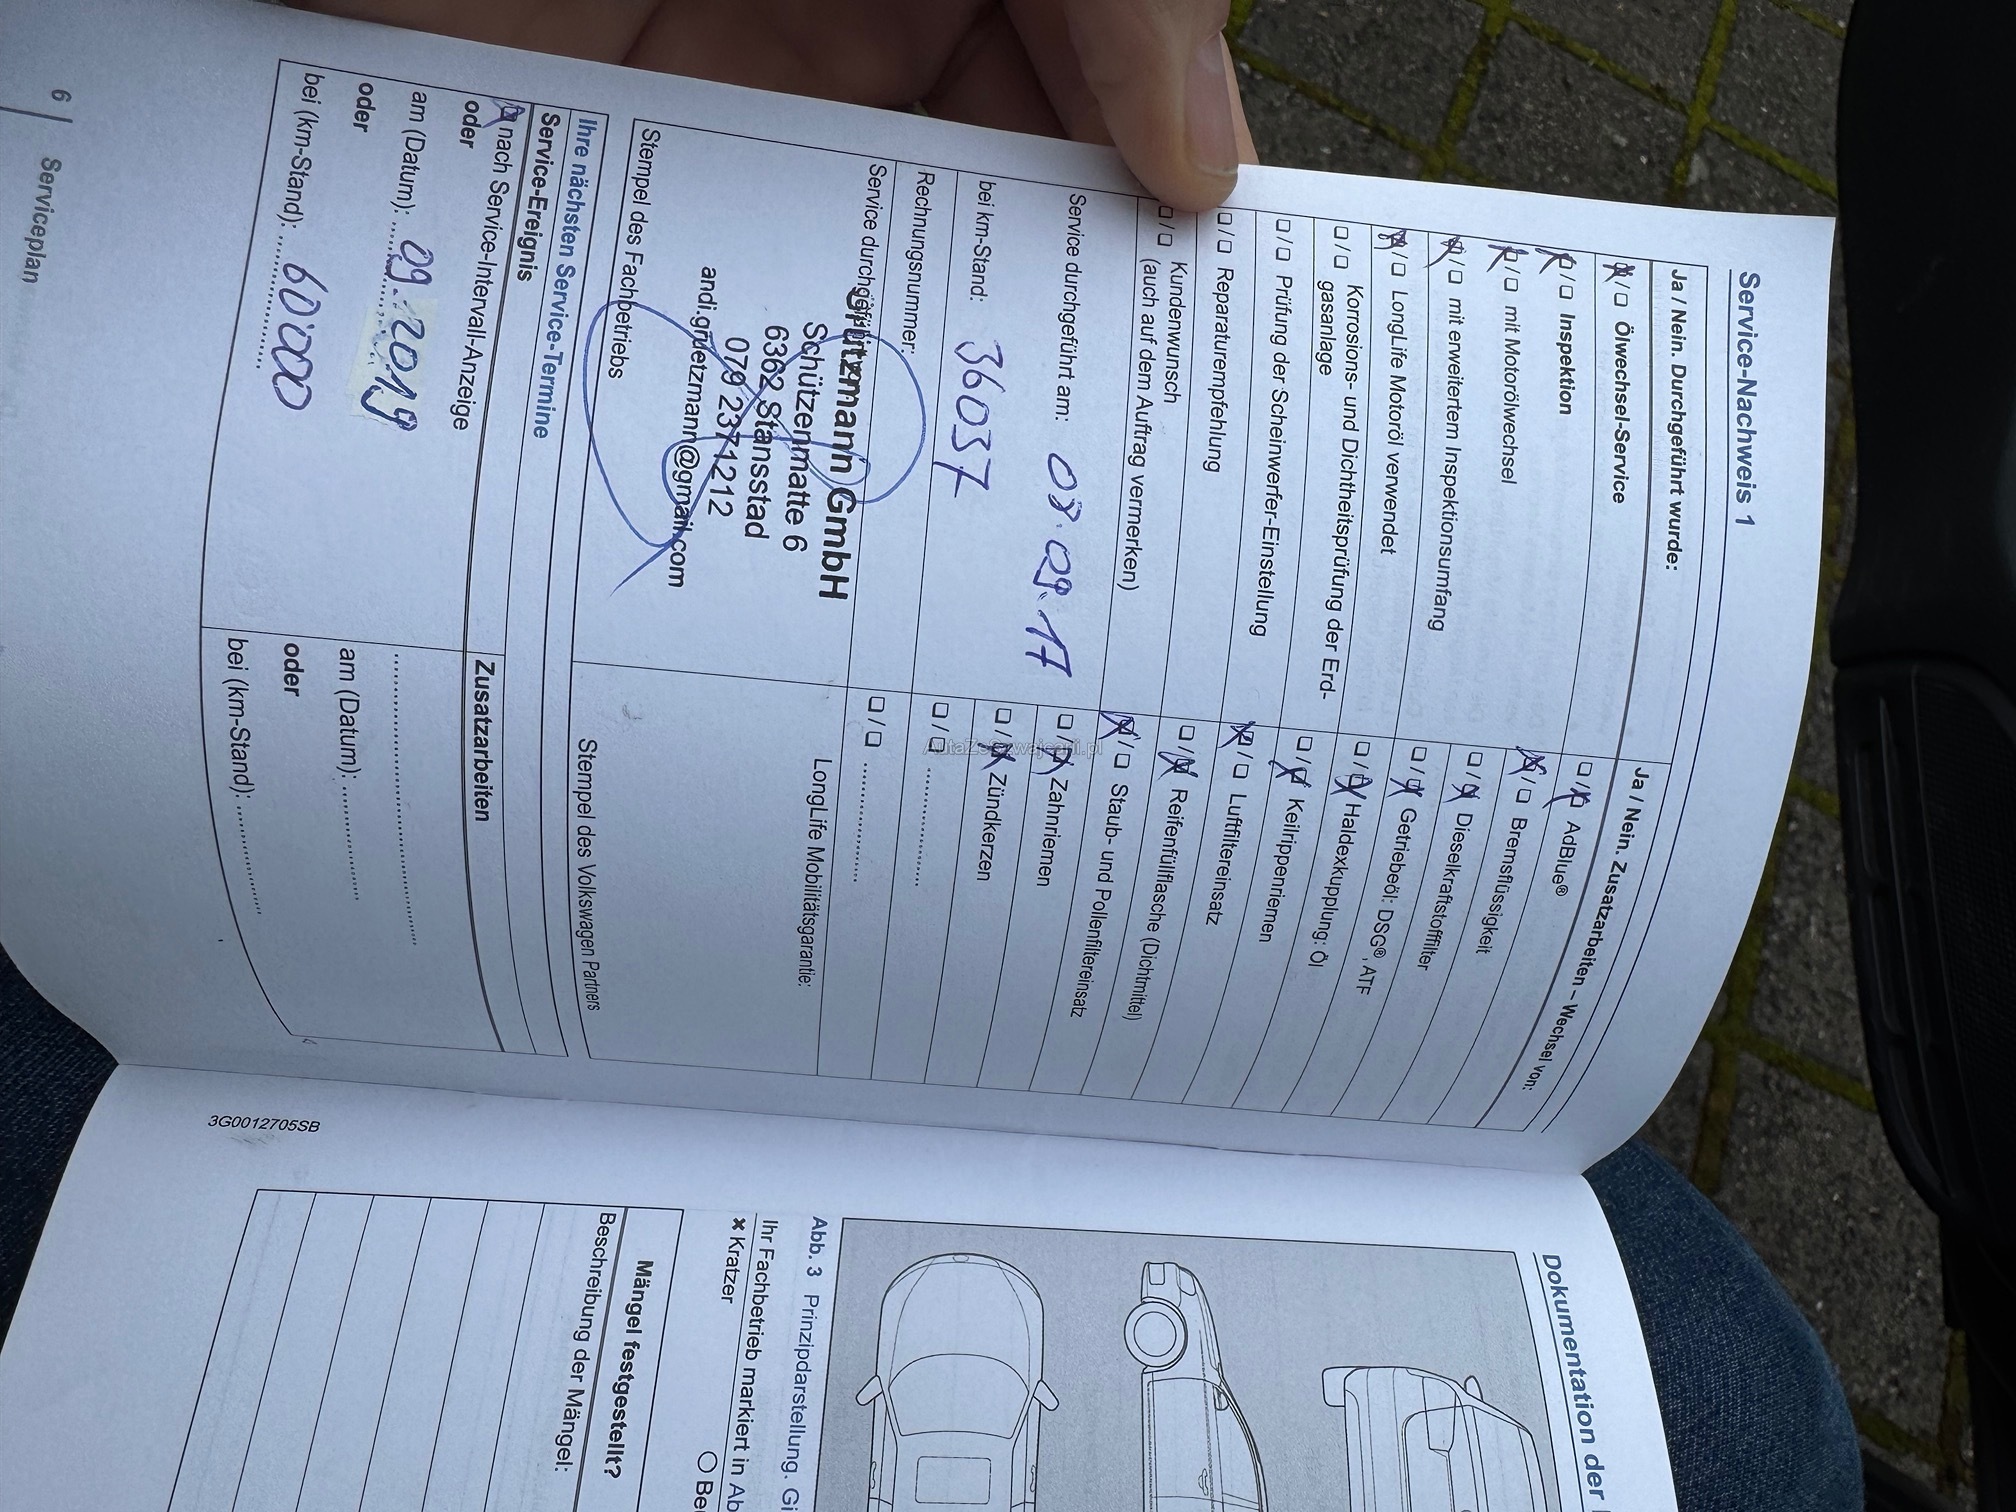 Service-Nachweis 1
Ja / Nein. Durchgeführt wurde:
☒/☐ Ölwechsel-Service
☒/☐ Inspektion
☒/☐ mit Motorölwechsel
☒/☐ mit erweitertem Inspektionsumfang
☒/☐ LongLife Motoröl verwendet
☐/☐ Korrosions- und Dichtheitsprüfung der Erd-
gasanlage
☐/☐ Prüfung der Scheinwerfer-Einstellung
☐/☐ Reparaturempfehlung
☐/☐ Kundenwunsch
(auch auf dem Auftrag vermerken)
Service durchgeführt am: 08.09.17
bei km-Stand: 36037
Rechnungsnummer:
Service durchgeführt
Grützmann GmbH
Schützenmatte 6
6362 Stansstad
079 2371212
andi.gruetzmann@gmail.com
Stempel des Fachbetriebs
Ja / Nein. Zusatzarbeiten – Wechsel von:
☐/☒ AdBlue®
☒/☐ Bremsflüssigkeit
☐/☒ Dieselkraftstofffilter
☐/☒ Getriebeöl: DSG®, ATF
☐/☒ Haldexkupplung: Öl
☐/☒ Keilrippenriemen
☒/☐ Luftfiltereinsatz
☐/☒ Reifenfüllflasche (Dichtmittel)
☒/☐ Staub- und Pollenfiltereinsatz
☐/☒ Zahnriemen
☐/☒ Zündkerzen
☐/☐ ..................
☐/☐ ..................
LongLife Mobilitätsgarantie:
Stempel des Volkswagen Partners
Ihre nächsten Service-Termine
Service-Ereignis
☒ nach Service-Intervall-Anzeige
oder
am (Datum): 09.2019
oder
bei (km-Stand): 60'000
Zusatzarbeiten
am (Datum):
oder
bei (km-Stand):
6 | Serviceplan
AutaZeSzwajcarii.pl
3G0012705SB
Dokumentation der
Abb. 3 Prinzipdarstellung. Gi
Ihr Fachbetrieb markiert in Ab
✖ Kratzer
○ Be
Mängel festgestellt?
Beschreibung der Mängel: